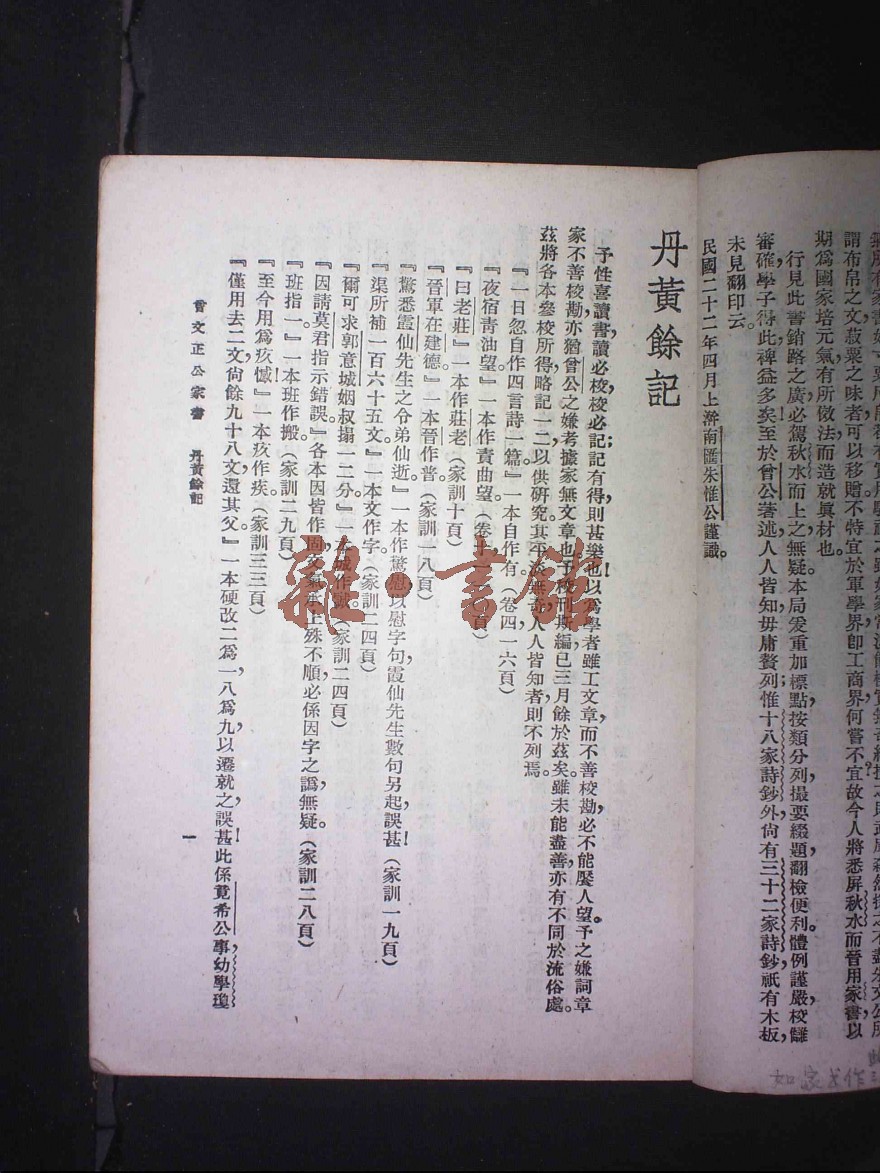 謂布帛之文菽粟之味者可以移贈不特宜於軍學界卽工商界何嘗不宜故今人將悉屏秋水而晉用家書以
期爲國家培元氣有所傚法而造就眞材也。
行見此書銷路之廣必駕秋水而上之無疑本局爰重加標點按類分列撮要綴題翻檢便利體例謹嚴校讎
審確學子得此裨益多矣至於曾公著述人人皆知毋庸贅列惟十八家詩鈔外尙有三十二家詩鈔祇有木板
未見翻印云。
民國二十二年四月上澣南匯朱惟公謹識。
丹黃餘記
予性喜讀書讀必校校必記記有得則甚樂也以爲學者雖工文章而不善校勘必不能饜人望。予之嫌詞章
家不善校勘亦猶曾公之嫌考據家無文章也予校刊斯編已三月餘於茲矣。雖未能盡善亦有不同於流俗處。
茲將各本參校所得略記一二以供硏究其平淡無奇人人皆知者則不列焉。
『一日忽自作四言詩一篇』一本自作有(卷四一六頁)
『夜宿靑油望。』一本作責曲望。(卷十一 頁)
『曰老莊』一本作莊老(家訓十頁)
『晉軍在建德。』一本晉作普(家訓一八頁)
『驚悉霞仙先生之令弟仙逝。』一本作驚慰以慰字句霞仙先生數句另起誤甚!(家訓一九頁)
『渠所補一百六十五文。』一本文作字(家訓二四頁)
『爾可求郭意城姻叔搨一二分。』一本城作誠(家訓二四頁)
『因請莫君指示錯誤。』各本因皆作固文氣接上殊不順必係因字之譌無疑。(家訓二八頁)
『班指。』一本班作搬(家訓二九頁)
『至今用爲疚憾!』一本疚作疾。(家訓三三頁)
『僅用去二文尙餘九十八文還其父。』一本硬改二爲一八爲九以遷就之誤甚!此係竟希公事幼學瓊
曾文正公家書 丹黃餘記
一
雜·書館